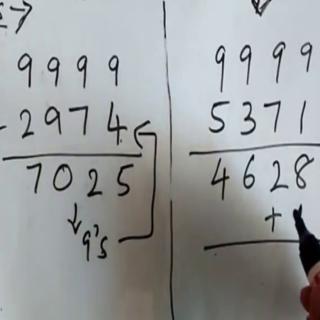 9999
- 2974
7025
9's
9999
5371
4628
+1